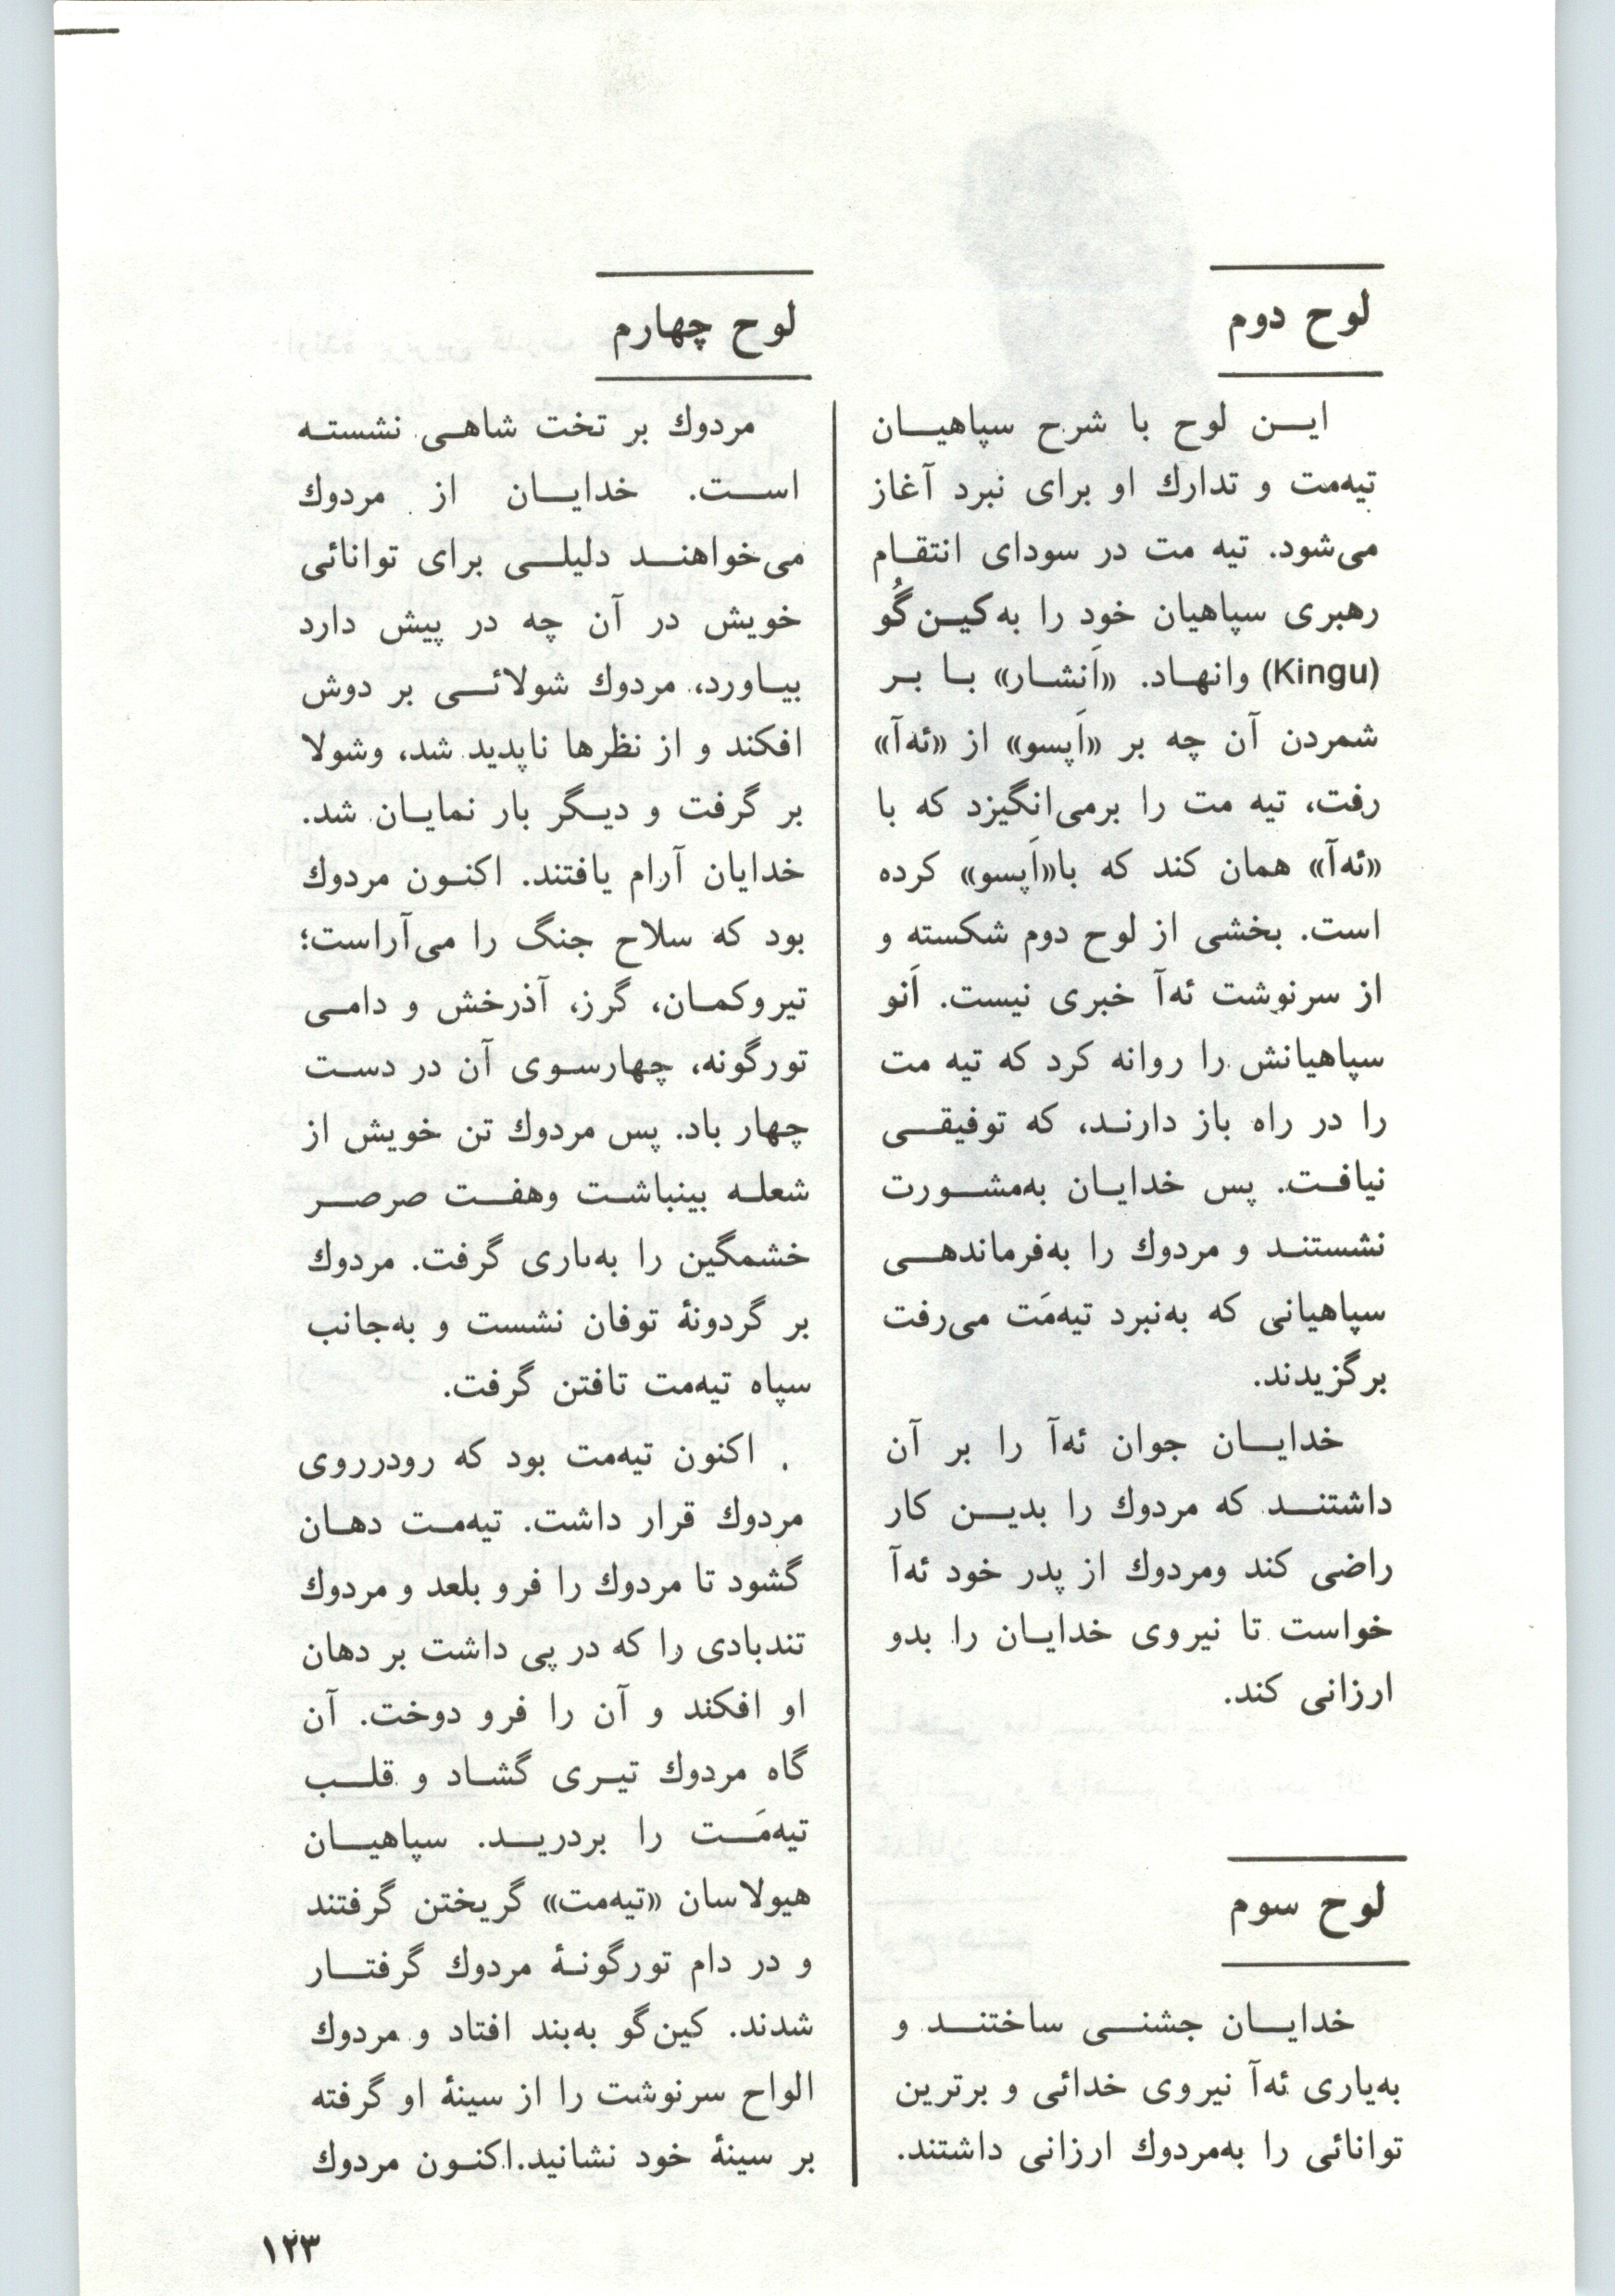 لوح دوم
ایـــن لوح با شرح سپاهیـــان
تیه‌مت و تدارك او برای نبرد آغاز
می‌شود. تیه مت در سودای انتقـام
رهبری سپاهیان خود را به‌کیـن‌گُو
(Kingu) وانهـاد. «اَنشـار» بـا بـر
شمردن آن چه بر «اَپسو» از «ئه‌آ»
رفت، تیه مت را برمی‌انگیزد که با
«ئه‌آ» همان کند که با«اَپسو» کرده
است. بخشی از لوح دوم شکسته و
از سرنوشت ئه‌آ خبری نیست. اَنو
سپاهیانش را روانه کرد که تیه مت
را در راه باز دارنـد، که توفیقـــی
نیافـت. پس خدایـان به‌مشـــورت
نشستنـد و مردوك را به‌فرماندهـی
سپاهیانی که به‌نبرد تیه‌مَت می‌رفت
برگزیدند.
خدایـــان جوان ئه‌آ را بر آن
داشتنـــد که مردوك را بدیـــن کار
راضی کند ومردوك از پدر خود ئه‌آ
خواست تا نیروی خدایـان را بدو
ارزانی کند.
لوح سوم
خدایـــان جشنـــی ساختنـــد و
به‌یاری ئه‌آ نیروی خدائی و برترین
توانائی را به‌مردوك ارزانی داشتند.
لوح چهارم
مردوك بر تخت شاهـی نشستـه
اســـت. خدایـــان از مردوك
می‌خواهنـــد دلیلـــی برای توانائی
خویش در آن چه در پیش دارد
بیـاورد، مردوك شولائـــی بر دوش
افکند و از نظرها ناپدید شد، وشولا
بر گرفت و دیـگر بار نمایـان شد.
خدایان آرام یافتند. اکنـون مردوك
بود که سلاح جنگ را می‌آراست؛
تیروکمـان، گرز، آذرخش و دامـی
تورگونه، چهارسـوی آن در دسـت
چهار باد. پس مردوك تن خویش از
شعلـه بینباشـت وهفـــت صرصـــر
خشمگین را به‌یاری گرفت. مردوك
بر گردونهٔ توفان نشست و به‌جانب
سپاه تیه‌مت تافتن گرفت.
اکنون تیه‌مت بود که رودرروی
مردوك قرار داشت. تیه‌مـت دهـان
گشود تا مردوك را فرو بلعد و مردوك
تندبادی را که در پی داشت بر دهان
او افکند و آن را فرو دوخت. آن
گاه مردوك تیـری گشـاد و قلـــب
تیه‌مَـــت را بردریـــد. سپاهیـــان
هیولاسان «تیه‌مت» گریختن گرفتند
و در دام تورگونـهٔ مردوك گرفتـــار
شدند. کین‌گو به‌بند افتاد و مردوك
الواح سرنوشت را از سینهٔ او گرفته
بر سینهٔ خود نشانید.اکنـون مردوك
۱۲۳